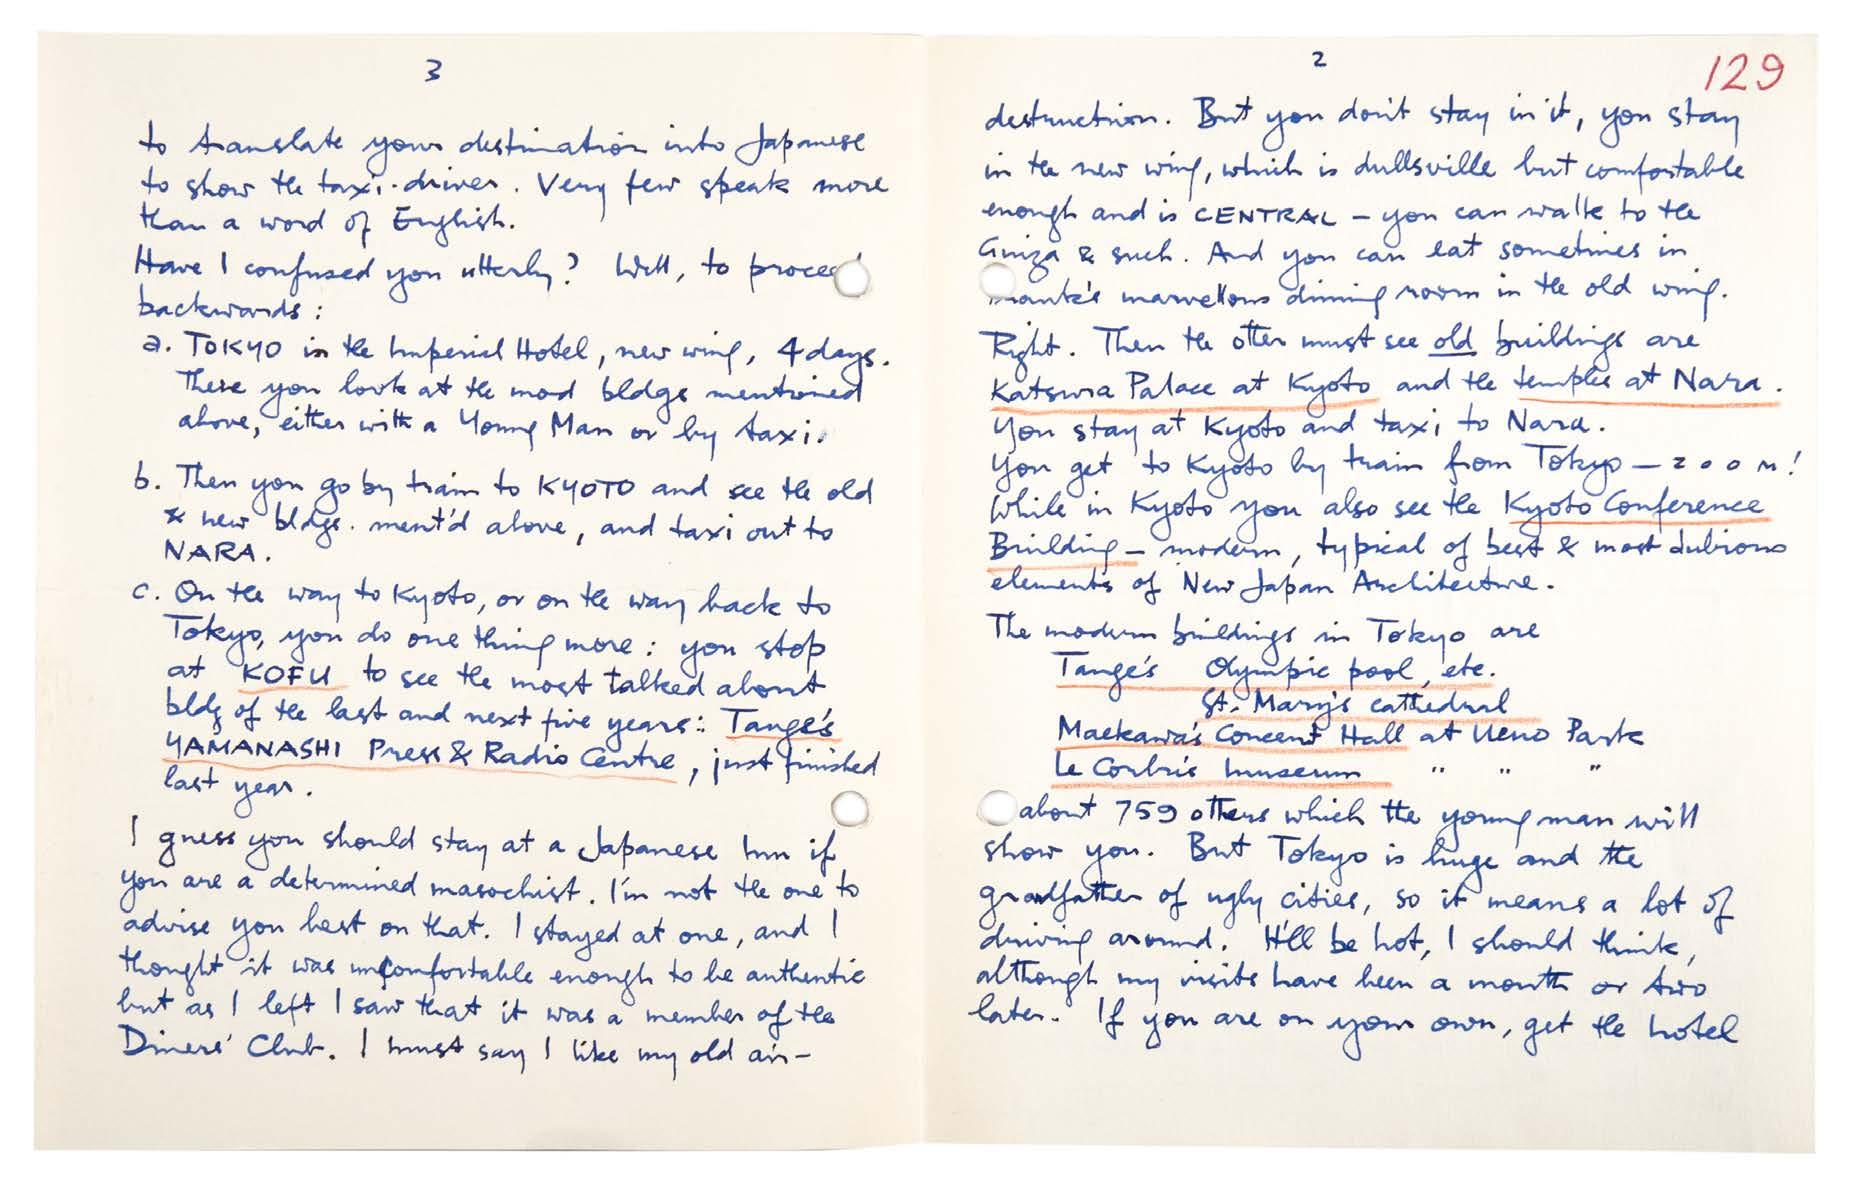 2
129
destruction. But you don't stay in it, you stay
in the new wing, which is dullsville but comfortable
enough and is CENTRAL – you can walk to the
Ginza & such. And you can eat sometimes in
marvellous dining room in the old wing.
Right. Then the other must see old buildings are
Katsura Palace at Kyoto and the temples at Nara.
You stay at Kyoto and taxi to Nara.
You get to Kyoto by train from Tokyo – zoom!
While in Kyoto you also see the Kyoto Conference
Building – modern, typical of best & most dubious
elements of New Japan Architecture.
The modern buildings in Tokyo are
Tange's Olympic pool, etc.
St. Mary's cathedral
Maekawa's Concert Hall at Ueno Park
Le Corbu's museum " " "
about 759 others which the young man will
show you. But Tokyo is huge and the
grandfather of ugly cities, so it means a lot of
driving around. It'll be hot, I should think,
although my visits have been a month or two
later. If you are on your own, get the hotel
3
to translate your destination into Japanese
to show the taxi-driver. Very few speak more
than a word of English.
Have I confused you utterly? Well, to proceed
backwards:
a. TOKYO in the Imperial Hotel, new wing, 4 days.
There you look at the mod bldgs mentioned
above, either with a Young Man or by taxi.
b. Then you go by train to KYOTO and see the old
& new bldgs. ment'd above, and taxi out to
NARA.
c. On the way to Kyoto, or on the way back to
Tokyo, you do one thing more: you stop
at KOFU to see the most talked about
bldg of the last and next five years: Tange's
YAMANASHI Press & Radio Centre, just finished
last year.
I guess you should stay at a Japanese Inn if
you are a determined masochist. I'm not the one to
advise you best on that. I stayed at one, and I
thought it was uncomfortable enough to be authentic
but as I left I saw that it was a member of the
Diners' Club. I must say I like my old air-